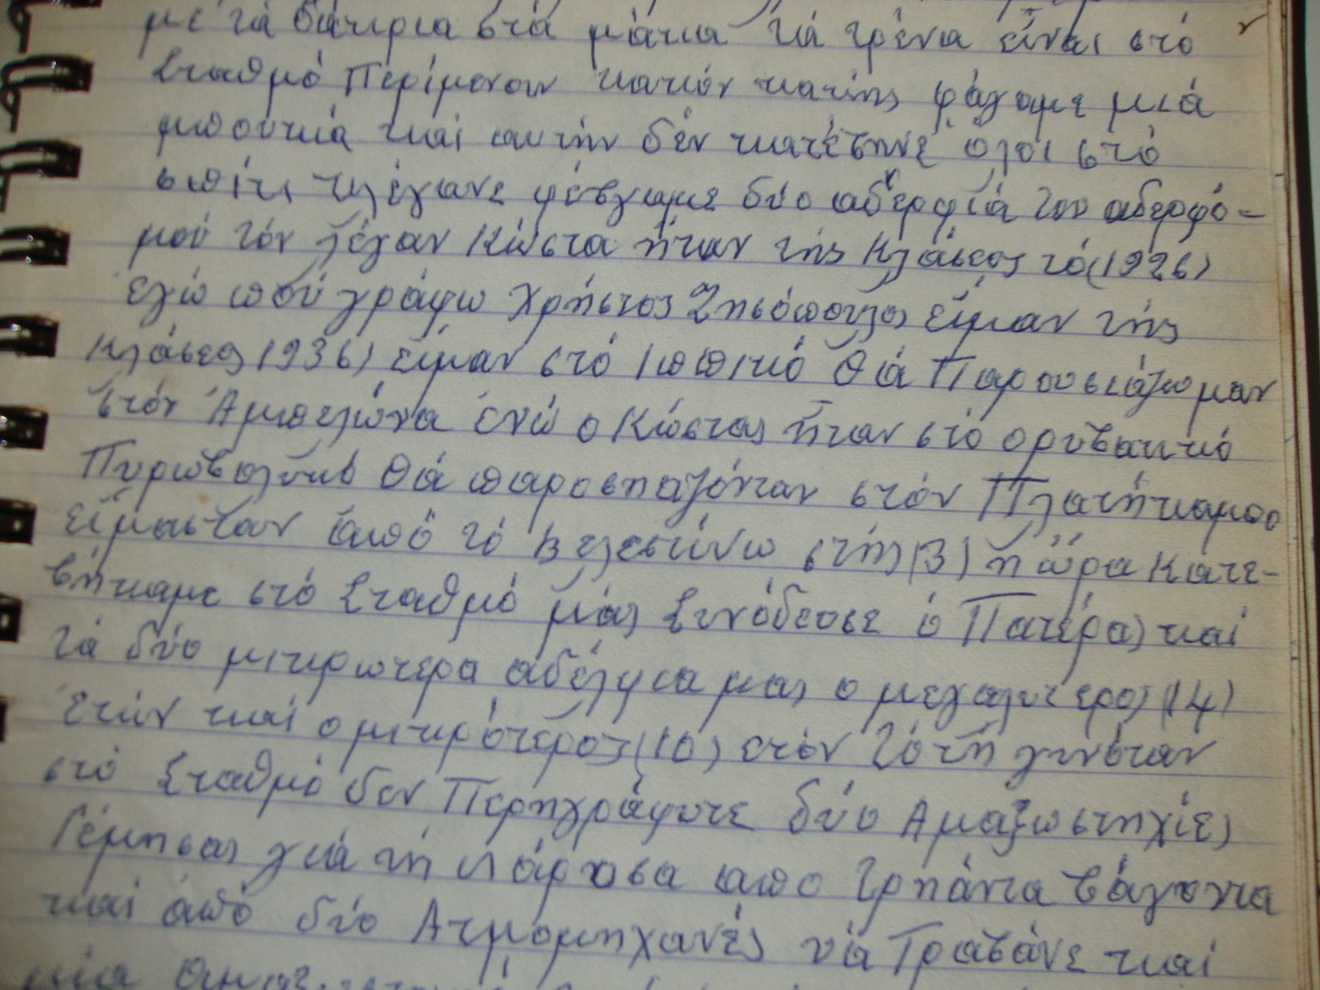 με τά δάκρια στά μάτια τά τρένα είναι στό
Σταθμό Περίμενουν φάγαμε μιά
μπουκιά καί αυτήν δέν κατέβηνε όλοι στό
σπίτι κλέγανε φέβγαμε δύο αδερφιά του αδερφό-
μού τόν λέγαν Κώστα ήταν τής κλάσεος τό (1926)
Εγώ πού γράφω Χρήστος είμαν τής
κλάσεος 1936) είμαν στό Ιππικό θά Παρουσιάζομαν
στόν Αμπελώνα ενώ ο Κώστας ήταν στό ορυβατικό
Πυρωβολικό θά παροσιαζόνταν στόν Πλατήκαμπο
είμασταν από τό Βελεστίνο στής (3) η ώρα Κατε-
βήκαμε στό Σταθμό μάς Συνόδεσε ό Πατέρας καί
τά δύο μικρωτερα αδέλφια μας ο μεγαλυτερος (14)
Ετών καί ο μικρότερος (10) ετόν τό τή γινόταν
στό Σταθμό δεν Περηγράφυτε δύο Αμαξωστηχίες
Γέμησας γιά τή Λάρισα απο τρηάντα βάγονια
καί από δύο Ατμομηχανές νά Τραβάνε καί
μία